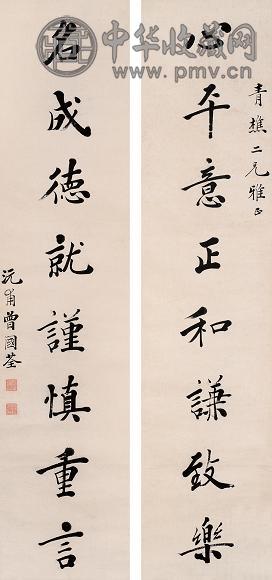 中华收藏网
www.pmv.cn
青樵二兄雅正
心平意正和謙致樂
名成德就謹慎重言
沅甫曾國荃